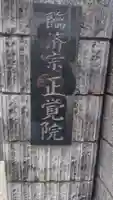 臨済宗正覚院